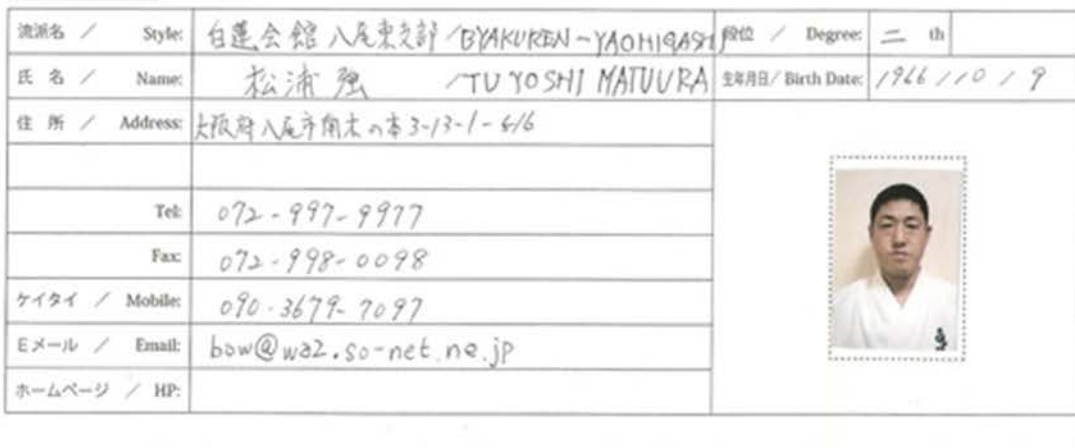 流派名 / Style: 白蓮会館 八尾東支部 /BYAKUREN-YAOHIGASHI 段位 / Degree: 二 th
氏 名 / Name: 松浦 強 /TUYOSHI MATUURA 生年月日/ Birth Date: 1966 / 10 / 9
住 所 / Address: 大阪府八尾市南木の本3-13-1-616
Tel: 072-997-9977
Fax: 072-998-0098
ケイタイ / Mobile: 090-3679-7097
Eメール / Email: bow@wa2.so-net.ne.jp
ホームページ / HP: